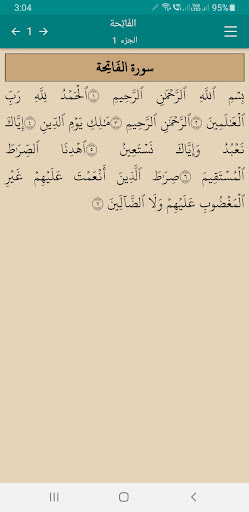 3:04
95%
الفَاتِحة
الجزء 1
← 1 →
سورة الفَاتِحة
بِسْمِ ٱللَّهِ ٱلرَّحْمَٰنِ ٱلرَّحِيمِ ۝١ ٱلْحَمْدُ لِلَّهِ رَبِّ
ٱلْعَٰلَمِينَ ۝٢ ٱلرَّحْمَٰنِ ٱلرَّحِيمِ ۝٣ مَٰلِكِ يَوْمِ ٱلدِّينِ ۝٤ إِيَّاكَ
نَعْبُدُ وَإِيَّاكَ نَسْتَعِينُ ۝٥ ٱهْدِنَا ٱلصِّرَٰطَ
ٱلْمُسْتَقِيمَ ۝٦ صِرَٰطَ ٱلَّذِينَ أَنْعَمْتَ عَلَيْهِمْ غَيْرِ
ٱلْمَغْضُوبِ عَلَيْهِمْ وَلَا ٱلضَّآلِّينَ ۝٧